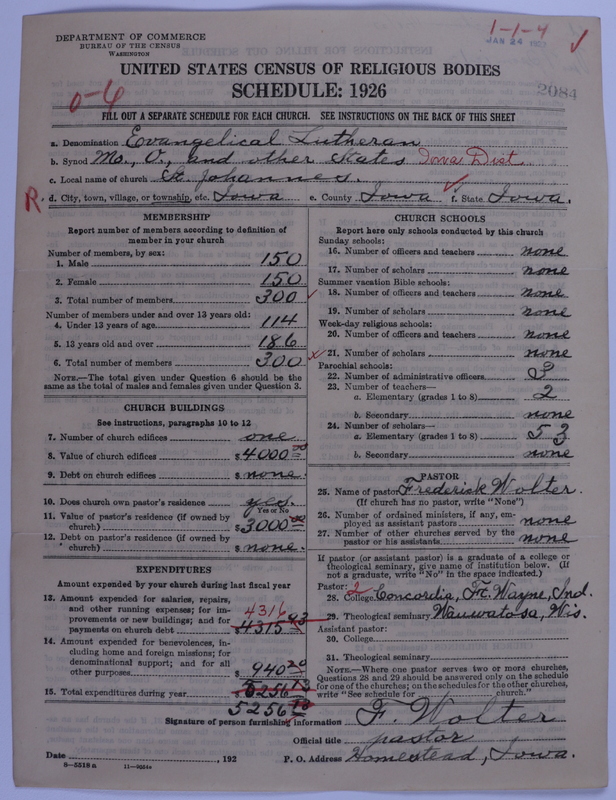 DEPARTMENT OF COMMERCE
BUREAU OF THE CENSUS
WASHINGTON
1-1-4
JAN 24 1927
UNITED STATES CENSUS OF RELIGIOUS BODIES
SCHEDULE: 1926
0-6
2084
FILL OUT A SEPARATE SCHEDULE FOR EACH CHURCH. SEE INSTRUCTIONS ON THE BACK OF THIS SHEET
a. Denomination Evangelical Lutheran
b. Synod Mo., O., and other States Iowa Dist
c. Local name of church St. Johannes.
R. d. City, town, village, or township, etc. Iowa e. County Iowa f. State Iowa.
MEMBERSHIP
Report number of members according to definition of
member in your church
Number of members, by sex:
1. Male 150
2. Female 150
3. Total number of members 300
Number of members under and over 13 years old:
4. Under 13 years of age 114
5. 13 years old and over 186
6. Total number of members 300
NOTE.—The total given under Question 6 should be the
same as the total of males and females given under Question 3.
CHURCH BUILDINGS
See instructions, paragraphs 10 to 12
7. Number of church edifices one
8. Value of church edifices $4000 00
9. Debt on church edifices $ none.
10. Does church own pastor's residence yes.
Yes or No
11. Value of pastor's residence (if owned by
church) $3000 00
12. Debt on pastor's residence (if owned by
church) $ none.
EXPENDITURES
Amount expended by your church during last fiscal year
13. Amount expended for salaries, repairs,
and other running expenses; for im-
provements or new buildings; and for
4316
payments on church debt $4315 93
14. Amount expended for benevolences, in-
cluding home and foreign missions; for
denominational support; and for all
other purposes $940 20
15. Total expenditures during year $5256 13
5256 13
CHURCH SCHOOLS
Report here only schools conducted by this church
Sunday schools:
16. Number of officers and teachers none
17. Number of scholars none
Summer vacation Bible schools:
18. Number of officers and teachers none
19. Number of scholars none
Week-day religious schools:
20. Number of officers and teachers none
21. Number of scholars none
Parochial schools:
22. Number of administrative officers 3
23. Number of teachers—
a. Elementary (grades 1 to 8) 2
b. Secondary none
24. Number of scholars—
a. Elementary (grades 1 to 8) 53
b. Secondary none
PASTOR
25. Name of pastor Frederick Wolter.
(If church has no pastor, write "None")
26. Number of ordained ministers, if any, em-
ployed as assistant pastors none
27. Number of other churches served by the
pastor or his assistants none
If pastor (or assistant pastor) is a graduate of a college or
theological seminary, give name of institution below. (If
not a graduate, write "No" in the space indicated.)
Pastor: 2
28. College Concordia, Ft. Wayne, Ind.
29. Theological seminary Wauwatosa, Wis.
Assistant pastor:
30. College
31. Theological seminary
NOTE.—Where one pastor serves two or more churches,
Questions 28 and 29 should be answered only on the schedule
for one of the churches; on the schedules for the other churches,
write "See schedule for church."
Signature of person furnishing information F. Wolter
Official title pastor
Date , 192 P. O. Address Homestead, Iowa.
8—5518 a 11—9554